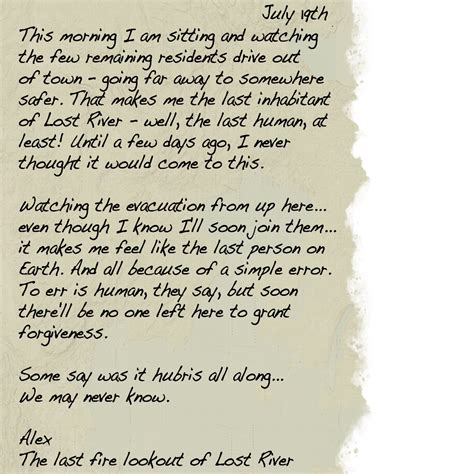 July 19th
This morning I am sitting and watching
the few remaining residents drive out
of town - going far away to somewhere
safer. That makes me the last inhabitant
of Lost River - well, the last human, at
least! Until a few days ago, I never
thought it would come to this.
Watching the evacuation from up here...
even though I know I'll soon join them...
it makes me feel like the last person on
Earth. And all because of a simple error.
To err is human, they say, but soon
there'll be no one left here to grant
forgiveness.
Some say was it hubris all along...
We may never know.
Alex
The last fire lookout of Lost River